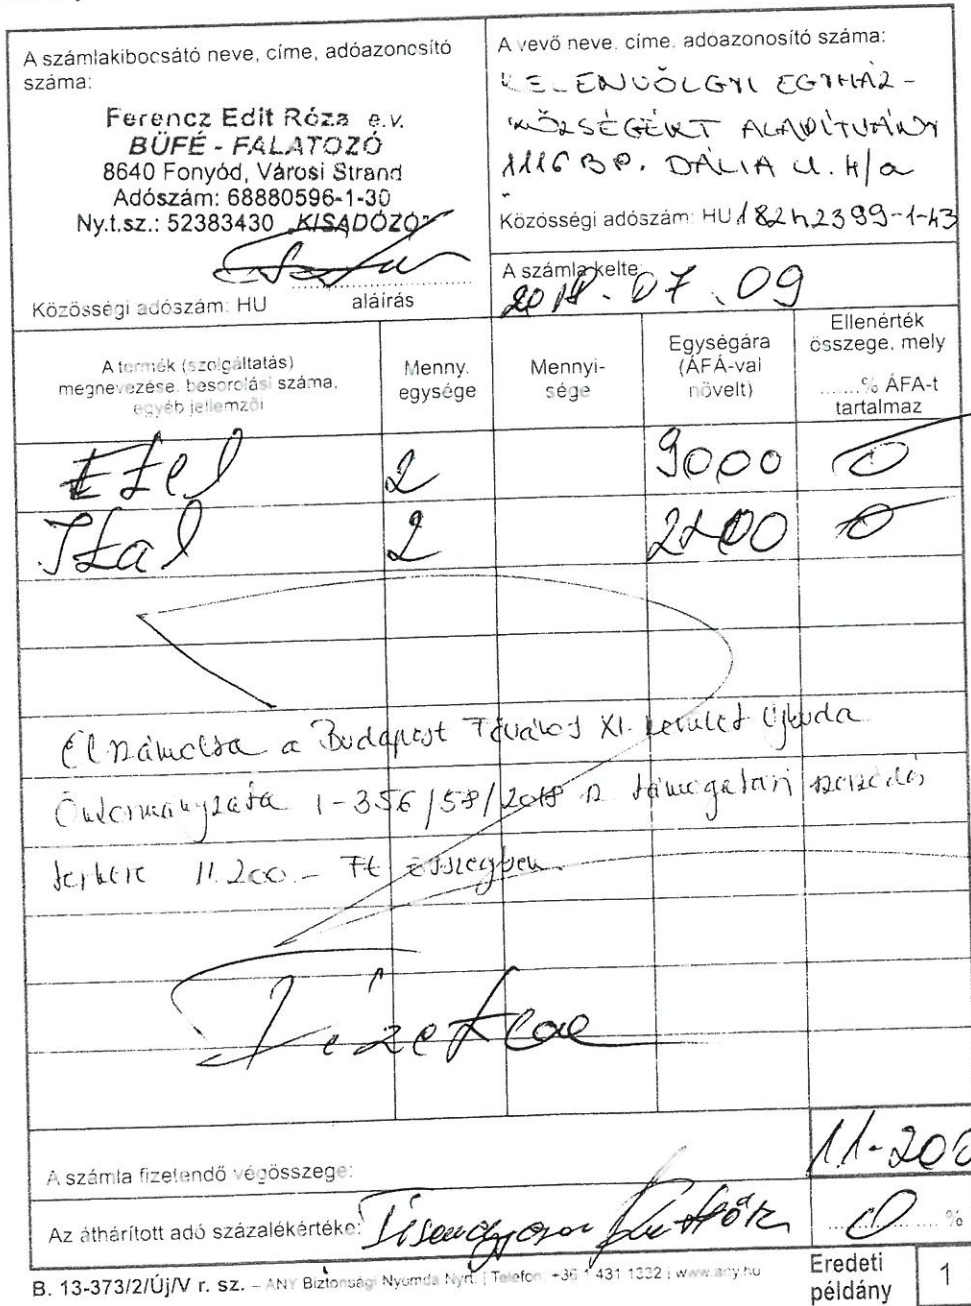 A számlakibocsátó neve, címe, adóazonosító
száma:
Ferencz Edit Róza e.v.
BÜFÉ - FALATOZÓ
8640 Fonyód, Városi Strand
Adószám: 68880596-1-30
Ny.t.sz.: 52383430 "KISADÓZÓ"
aláírás
Közösségi adószám: HU
A vevő neve, címe, adóazonosító száma:
KELENVÖLGYI EGYHÁZ-
KÖZSÉGÉRT ALAPÍTVÁNY
1116 BP. DÁLIA U. 4/a
Közösségi adószám: HU 18242399-1-43
A számla kelte:
2018.07.09
A termék (szolgáltatás)
megnevezése, besorolási száma,
egyéb jellemzői
Menny.
egysége
Mennyi-
sége
Egységára
(ÁFÁ-val
növelt)
Ellenérték
összege, mely
.......% ÁFA-t
tartalmaz
Étel 2 9000 0
Ital 2 2200 0
Elszámolva a Budapest Főváros XI. kerület Újbuda
Önkormányzata I-356/58/2018 sz támogatási szerződés
terhére 11.200.- Ft összegben.
Fizetve
A számla fizetendő végösszege: 11-200
Az áthárított adó százalékértéke: 0 %
B. 13-373/2/Új/V r. sz. – ANY Biztonsági Nyomda Nyrt. | Telefon: +36 1 431 1222 | www.any.hu
Eredeti
példány
1